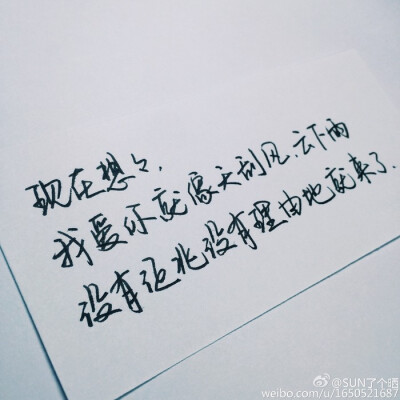 现在想々,
我爱你就像天刮风、云下雨
没有征兆没有理由地就来了.
@SUN了个晒
weibo.com/u/1650521687